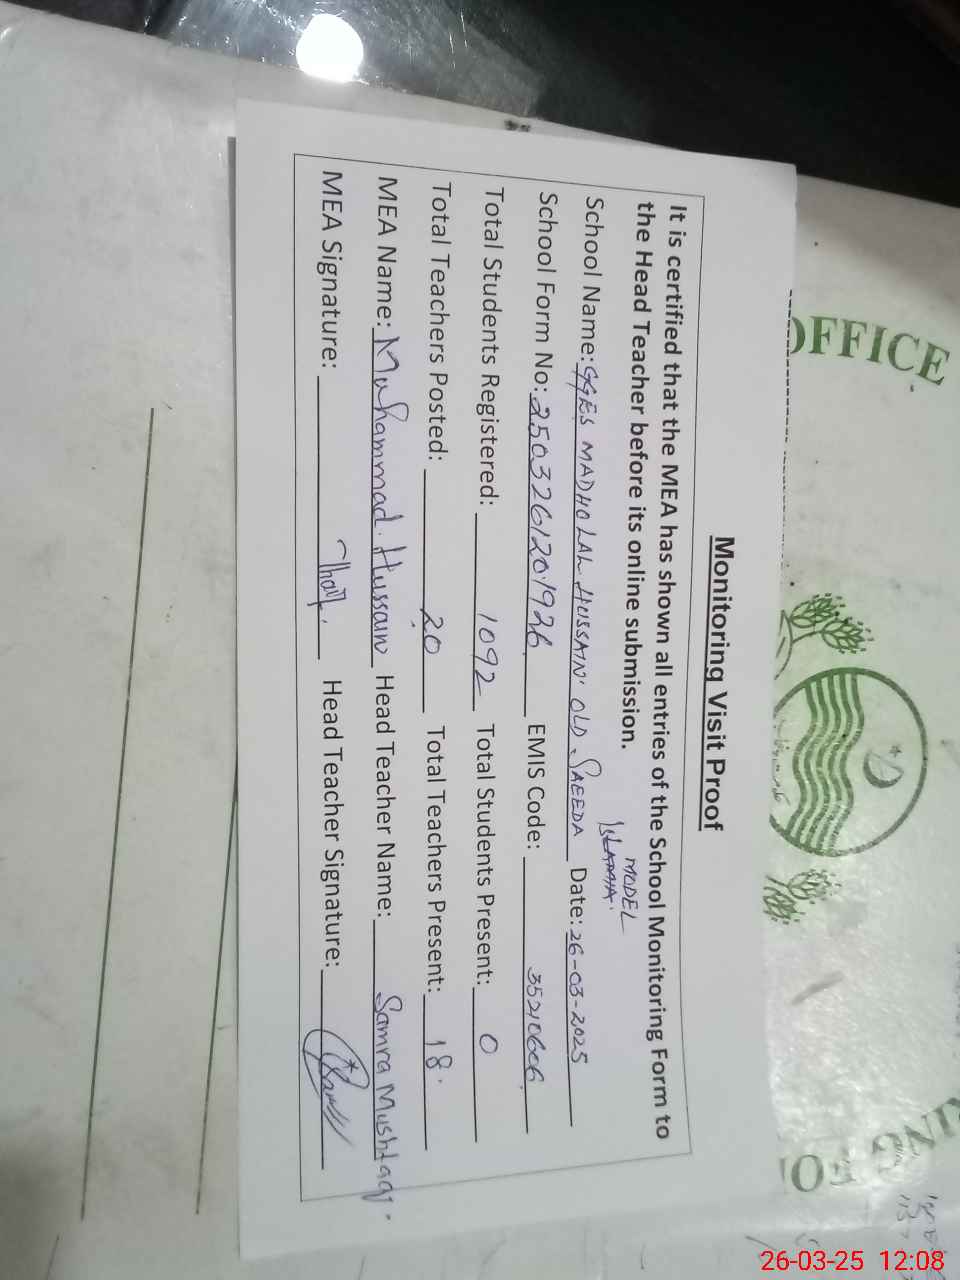 Monitoring Visit Proof
It is certified that the MEA has shown all entries of the School Monitoring Form to
the Head Teacher before its online submission.
MODEL
ISLAMIA.
School Name: GGES MADHO LAL HUSSAIN OLD SAEEDA Date: 26-03-2025
School Form No: 2503261201926 EMIS Code: 35210606
Total Students Registered: 1092 Total Students Present: 0
Total Teachers Posted: 20 Total Teachers Present: 18.
MEA Name: Muhammad Hussain Head Teacher Name: Samra Mushtaq.
MEA Signature: Head Teacher Signature:
OFFICE
26-03-25 12:08